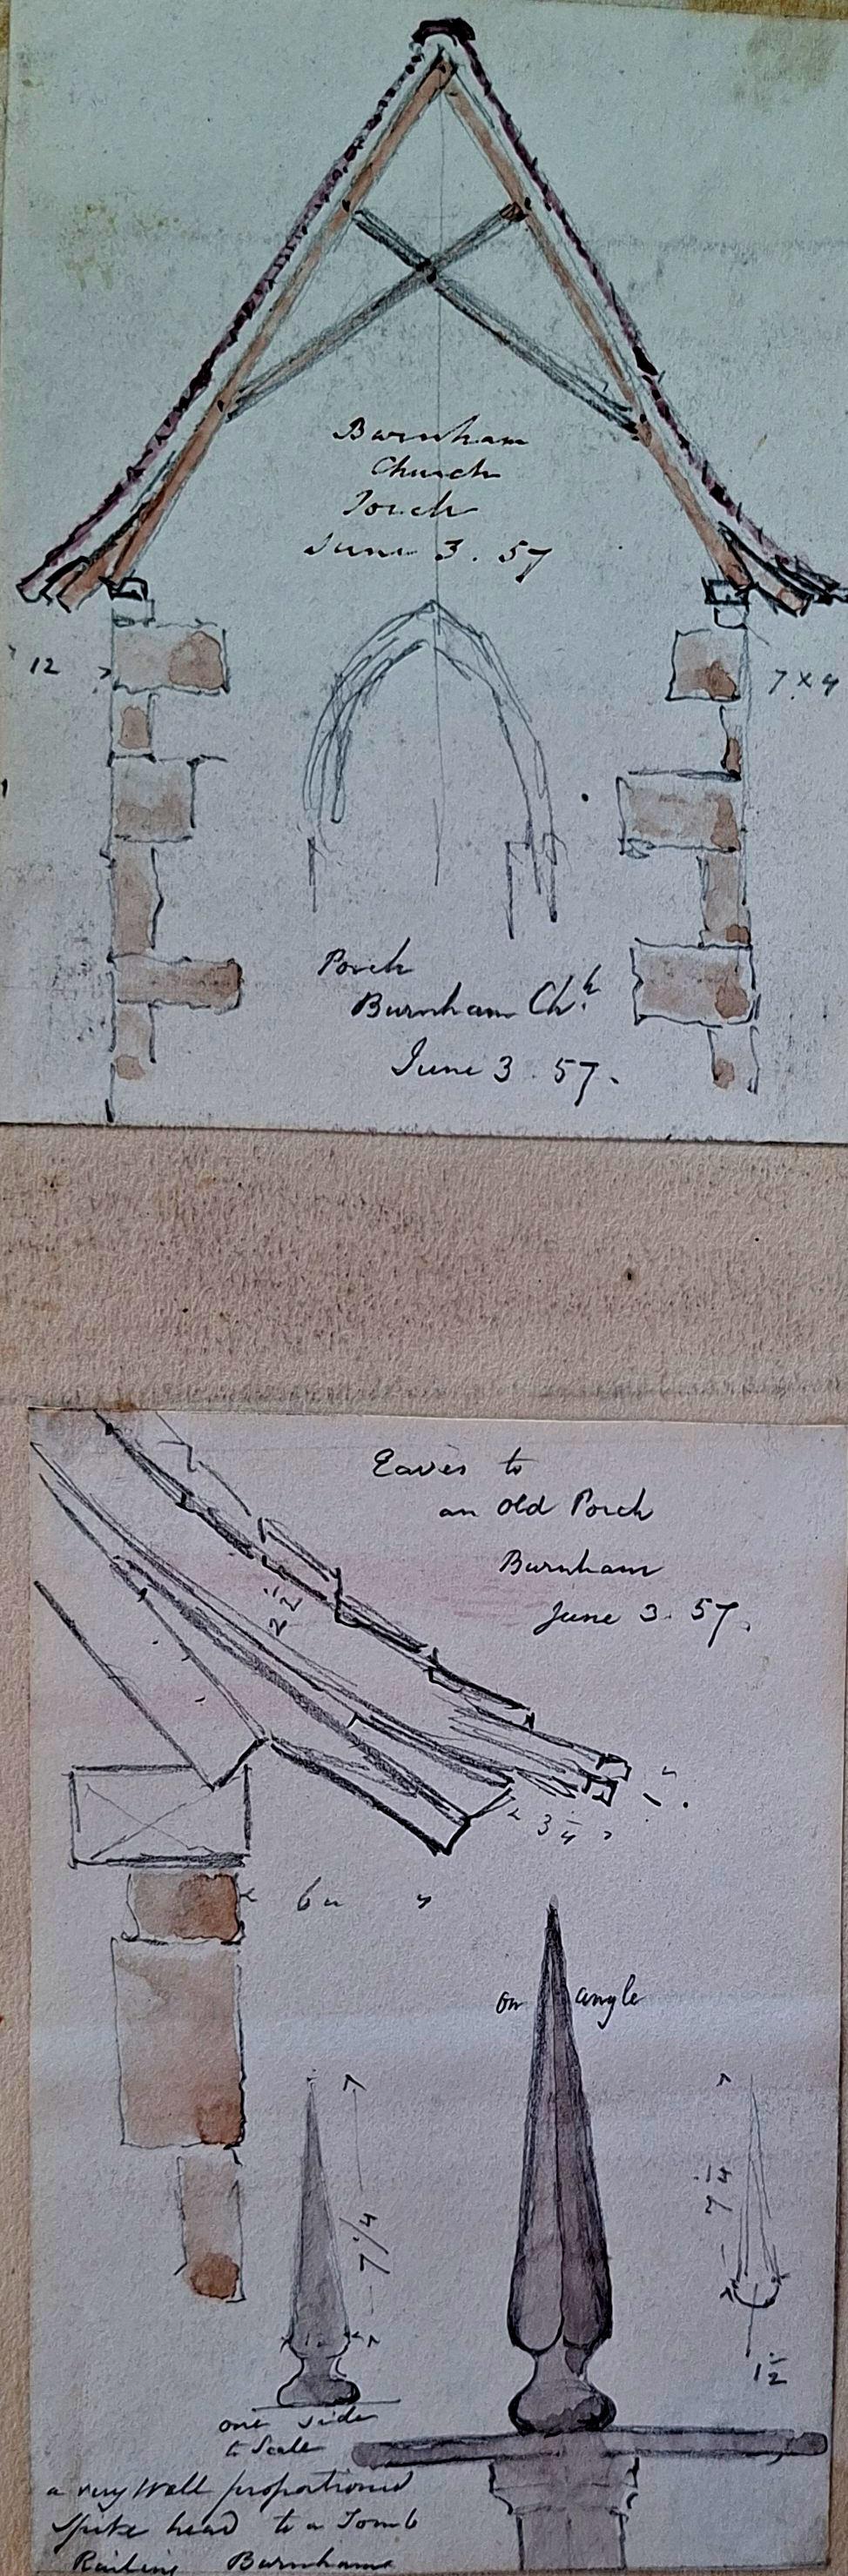 Burnham
Church
Porch
June 3. 57
12
7 x 4
Porch
Burnham Ch.h
June 3. 57.
Eaves to
an Old Porch
Burnham
June 3. 57.
2 1/2
3 3/4
6
on angle
7 1/4
7 1/4
1 1/2
one side
to Scale
a very Well proportioned
Spike head to a Tomb
Railing Burnham